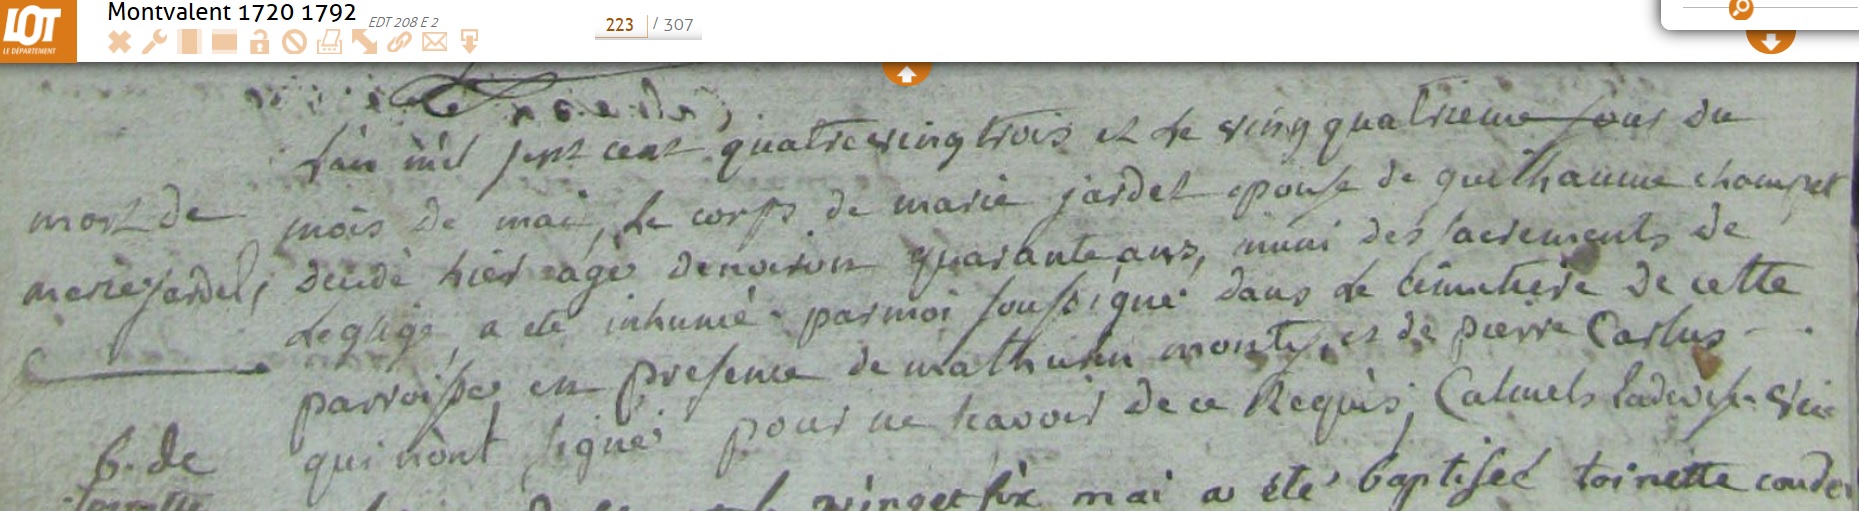 LOT
LE DÉPARTEMENT
Montvalent 1720 1792
EDT 208 E 2
223 / 307
Lan mil sept cent quatrevingtrois et le vingquatrieme jour du
mort de
mois de mai, le corps de marie jardel epouse de guilhaume
marie jardel,
décédé hier agé denviron quarante ans, muni des sacrements de
leglise a eté inhumé parmoi soussigné dans le cimetiere de cette
parroisse en presence de mathurin monty, et de pierre Carlus
qui nont signé pour ne scavoir de ce Requis, Calmels
b. de
toinette
vinget six mai a été baptisée toinette